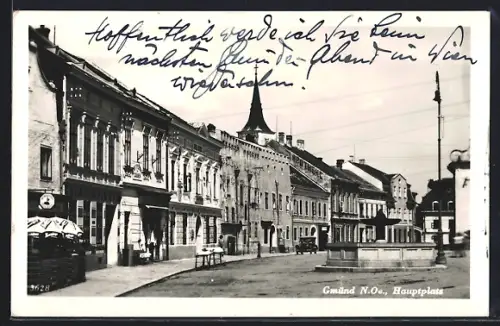 Hoffentlich werde ich Sie beim
nächsten der Abend in Wien
wiedersehn.
Gmünd N.Oe., Hauptplatz